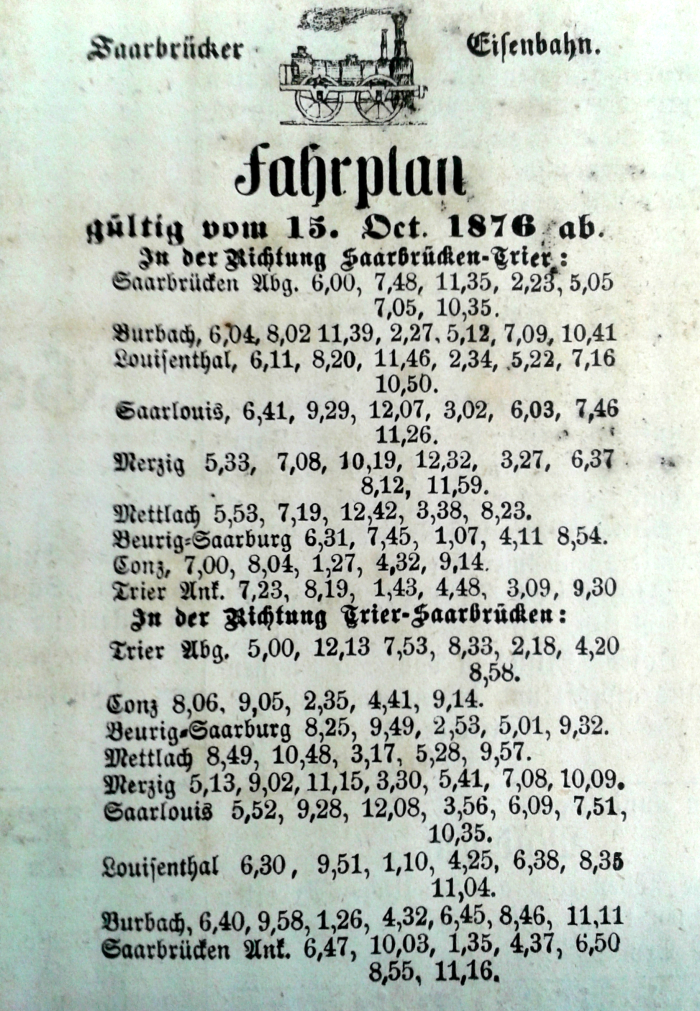 Saarbrücker Eisenbahn.
Fahrplan
gültig vom 15. Oct. 1876 ab.
In der Richtung Saarbrücken-Trier:
Saarbrücken Abg. 6,00, 7,48, 11,35, 2,23, 5,05
7,05, 10,35.
Burbach, 6,04, 8,02 11,39, 2,27, 5,12, 7,09, 10,41
Louisenthal, 6,11, 8,20, 11,46, 2,34, 5,22, 7,16
10,50.
Saarlouis, 6,41, 9,29, 12,07, 3,02, 6,03, 7,46
11,26.
Merzig 5,33, 7,08, 10,19, 12,32, 3,27, 6,37
8,12, 11,59.
Mettlach 5,53, 7,19, 12,42, 3,38, 8,23.
Beurig-Saarburg 6,31, 7,45, 1,07, 4,11 8,54.
Conz, 7,00, 8,04, 1,27, 4,32, 9,14.
Trier Ank. 7,23, 8,19, 1,43, 4,48, 3,09, 9,30
In der Richtung Trier-Saarbrücken:
Trier Abg. 5,00, 12,13 7,53, 8,33, 2,18, 4,20
8,58.
Conz 8,06, 9,05, 2,35, 4,41, 9,14.
Beurig-Saarburg 8,25, 9,49, 2,53, 5,01, 9,32.
Mettlach 8,49, 10,48, 3,17, 5,28, 9,57.
Merzig 5,13, 9,02, 11,15, 3,30, 5,41, 7,08, 10,09.
Saarlouis 5,52, 9,28, 12,08, 3,56, 6,09, 7,51,
10,35.
Louisenthal 6,30, 9,51, 1,10, 4,25, 6,38, 8,35
11,04.
Burbach, 6,40, 9,58, 1,26, 4,32, 6,45, 8,46, 11,11
Saarbrücken Ank. 6,47, 10,03, 1,35, 4,37, 6,50
8,55, 11,16.